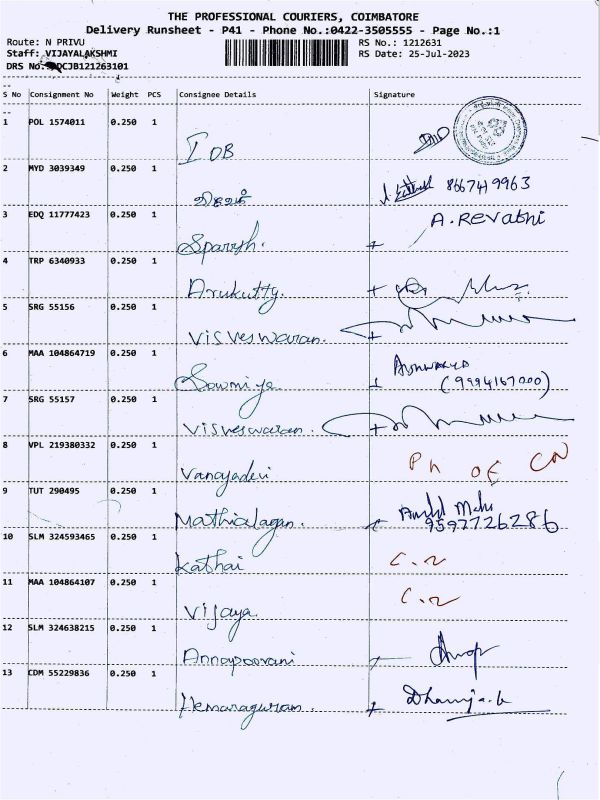 THE PROFESSIONAL COURIERS, COIMBATORE
Delivery Runsheet - P41 - Phone No.:0422-3505555 - Page No.:1
Route: N PRIVU RS No.: 1212631
Staff: VIJAYALAKSHMI RS Date: 25-Jul-2023
DRS No. DCJB121263101
S No Consignment No Weight PCS Consignee Details Signature
1 POL 1574011 0.250 1
IOB
2 MYD 3039349 0.250 1
8667419963
3 EDQ 11777423 0.250 1 A.Revathi
Sparysh.
4 TRP 6340933 0.250 1
Arukutty.
5 SRG 55156 0.250 1
Visveswaran.
6 MAA 104864719 0.250 1 Aishwarya
Sowmiya (9994167000)
7 SRG 55157 0.250 1
Visveswaran.
8 VPL 219380332 0.250 1 Ph OF CN
Vanajadevi
9 TUT 290495 0.250 1
Mathialagan. 9597726286
10 SLM 324593465 0.250 1 C.n
Kathai
11 MAA 104864107 0.250 1 C.n
Vijaya
12 SLM 324638215 0.250 1
Annapoorani Anop
13 CDM 55229836 0.250 1
Hemaraguram. Dhanja.b